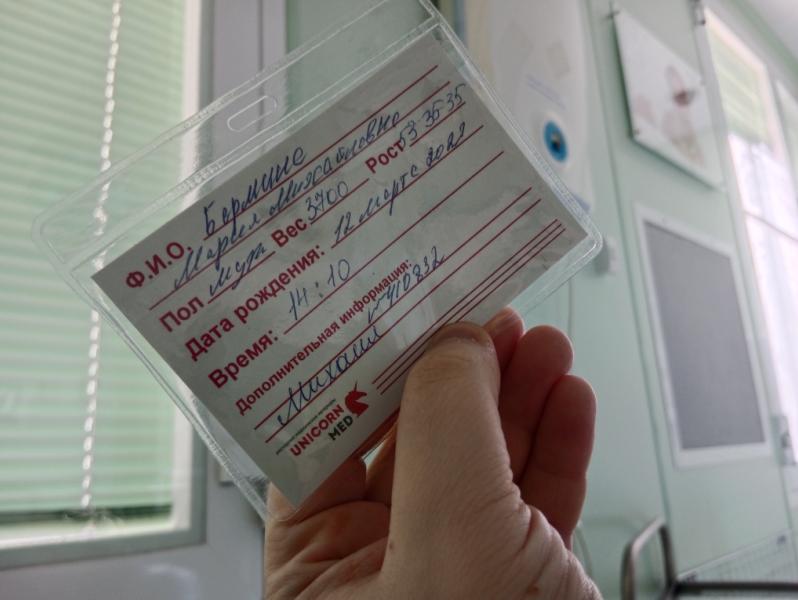 Ф.И.О. Бермис
Мария Михайловна
Пол муж Вес 3700 Рост 53 35 35
Дата рождения: 12 марта 2022
Время: 14:10
Дополнительная информация:
Михаил №410832
UNICORN
MED